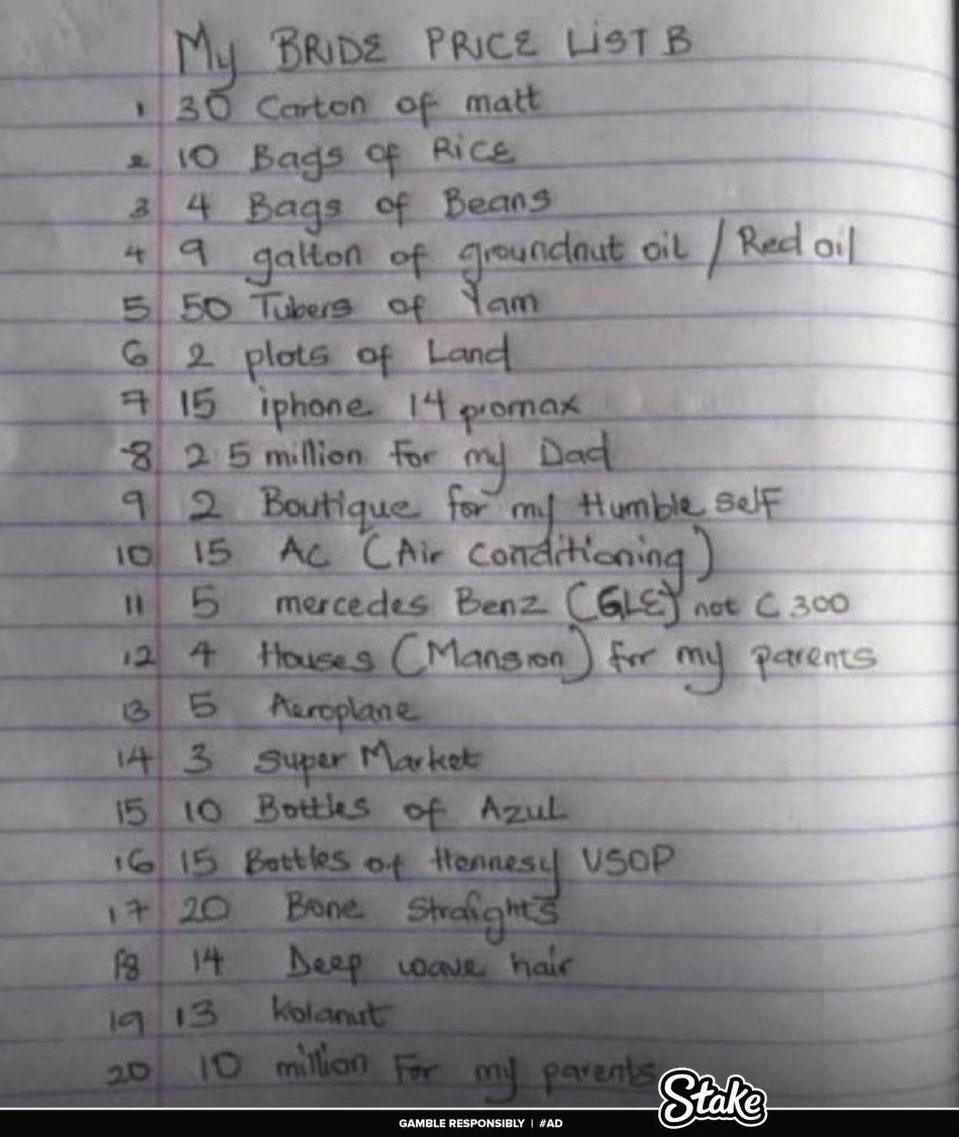 My BRIDE PRICE LIST B
1 30 Carton of matt
2 10 Bags of Rice
3 4 Bags of Beans
4 9 galton of groundnut oil / Red oil
5 50 Tubers of Yam
6 2 plots of Land
7 15 iphone 14 promax
8 2.5 million For my Dad
9 2 Boutique for my Humble self
10 15 AC (Air conditioning)
11 5 mercedes Benz (GLE) not C 300
12 4 Houses (Mansion) for my parents
13 5 Aeroplane
14 3 Super Market
15 10 Bottles of Azul
16 15 Bottles of Hennesy VSOP
17 20 Bone Straights
18 14 Deep wave hair
19 13 kolanut
20 10 million For my parents
Stake
GAMBLE RESPONSIBLY | #AD